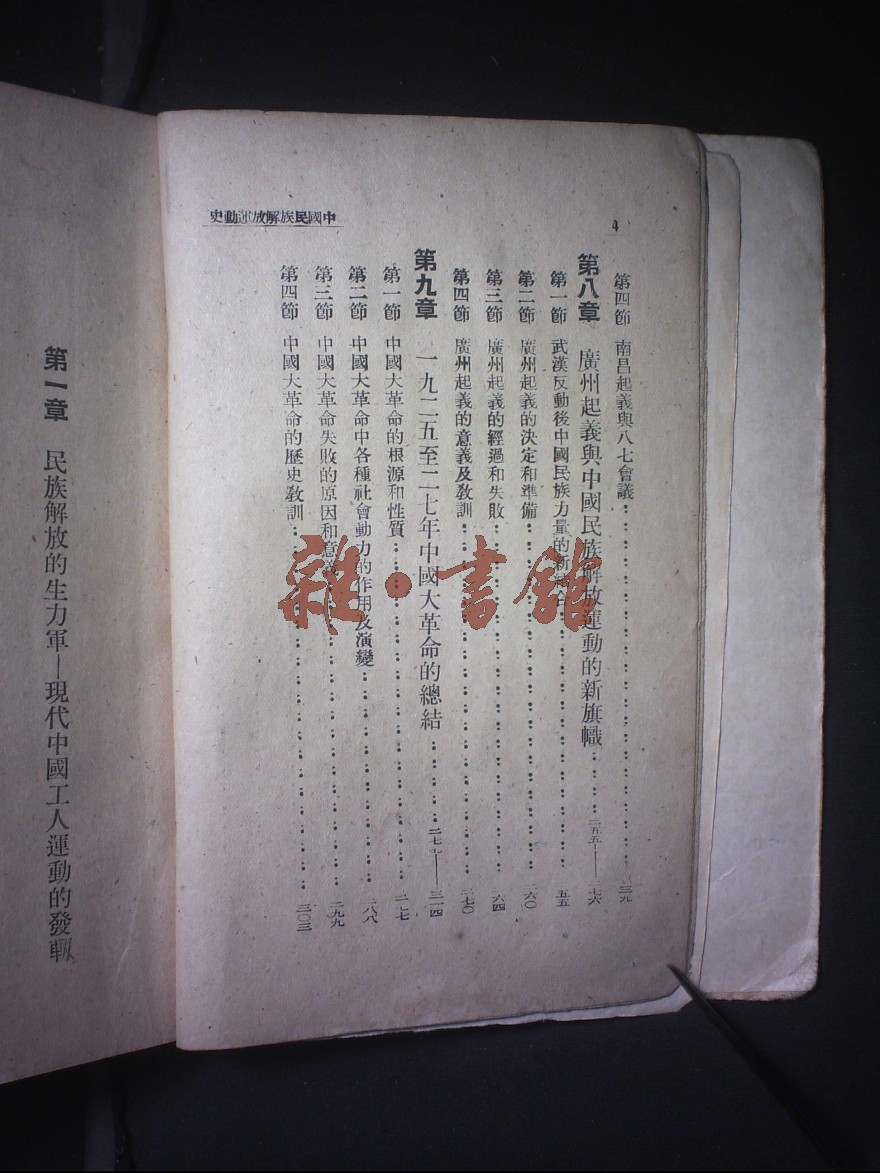 中國民族解放運動史
4
第四節 南昌起義與八七會議
第八章 廣州起義與中國民族解放運動的新旗幟 二五五—二七六
第一節 武漢反動後中國民族力量的新 五五
第二節 廣州起義的決定和準備 二六〇
第三節 廣州起義的經過和失敗 六四
第四節 廣州起義的意義及教訓 二七〇
第九章 一九二五至二七年中國大革命的總結 二七七—三一四
第一節 中國大革命的根源和性質
第二節 中國大革命中各種社會動力的作用及演變 二八八
第三節 中國大革命失敗的原因和意義 二九九
第四節 中國大革命的歷史教訓 三〇三
第一章 民族解放的生力軍—現代中國工人運動的發軔
雜·書館